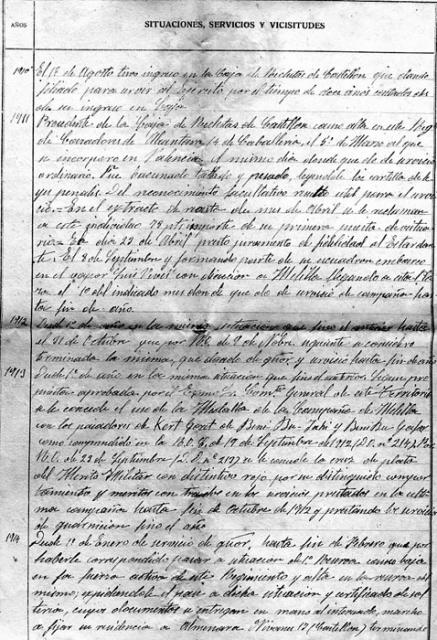 AÑOS
SITUACIONES, SERVICIOS Y VICISITUDES
1910 El 1º de Agosto tuvo ingreso en la Caja de Reclutas de Castellon que dando
filiado para servir al Ejercito por el tiempo de doce años contados desde
de su ingreso en Caja
1911 Procedente de la Caja de Reclutas de Castellon causo alta en este Regº
de Cazadores de Alcantara 14 de Caballeria, el 6 de Marzo del que
se incorporo en Valencia, el mismo dia donde quedo de servicio
ordinario. Fue vacunado tallado y pesado, leyendole las cartillas de
leyes penales. Del reconocimiento facultativo resulto util para el servi
cio. En el extracto de revista del mes de Abril se le reclaman
a este individuo pesetas importe de su primera puesta de vestua
rio. El dia 23 de Abril presto juramento de fidelidad al Estandar
te. El 8 de Septiembre y formando parte de su escuadron embarco
en el vapor con direccion a Melilla llegando a esta Pla
za el del indicado mes donde quedo de servicio de campaña has
ta fin de año.
1912 Desde 1º de año en la misma situacion que fino el anterior hasta
el 31 de Octubre que por de 2 de Nobre siguiente se considero
terminada la misma, quedando de guor y servicio hasta fin de año
1913 Desde 1º de año en la misma situacion que fino el anterior. Segun pro
puesta aprobada por el Exmo Sr Comte General de este Territorio
se le concede el uso de la Medalla de la Campaña de Melilla
con los pasadores de Kert Garet de Beni Bu-Yahi y
como comprendido en la R.O.C. de 18 de Septiembre del 912 (D.O. nº Por
R.O. de 23 de Septiembre (D.O. nº se le concede la cruz de plata
del Merito Militar con distintivo rojo por su distinguido compor
tamiento y meritos contraidos en los servicios prestados en la ulti
ma campaña hasta fin de Octubre de 1912 y prestando los servicios
de guarnicion fino el año
1914 Desde 1º de Enero de servicio de guor, hasta fin de Febrero que por
haberle correspondido pasar a situacion de 1ª Reserva causo baja
en la fuerza activa de este Regimiento y alta en la reserva del
mismo; expidiendole el pase a dicha situacion y certificado de sol
teria, cuyos documentos se entregan en mano al interesado, marcho
a fijar su residencia a Almenara (Castellon) terminando